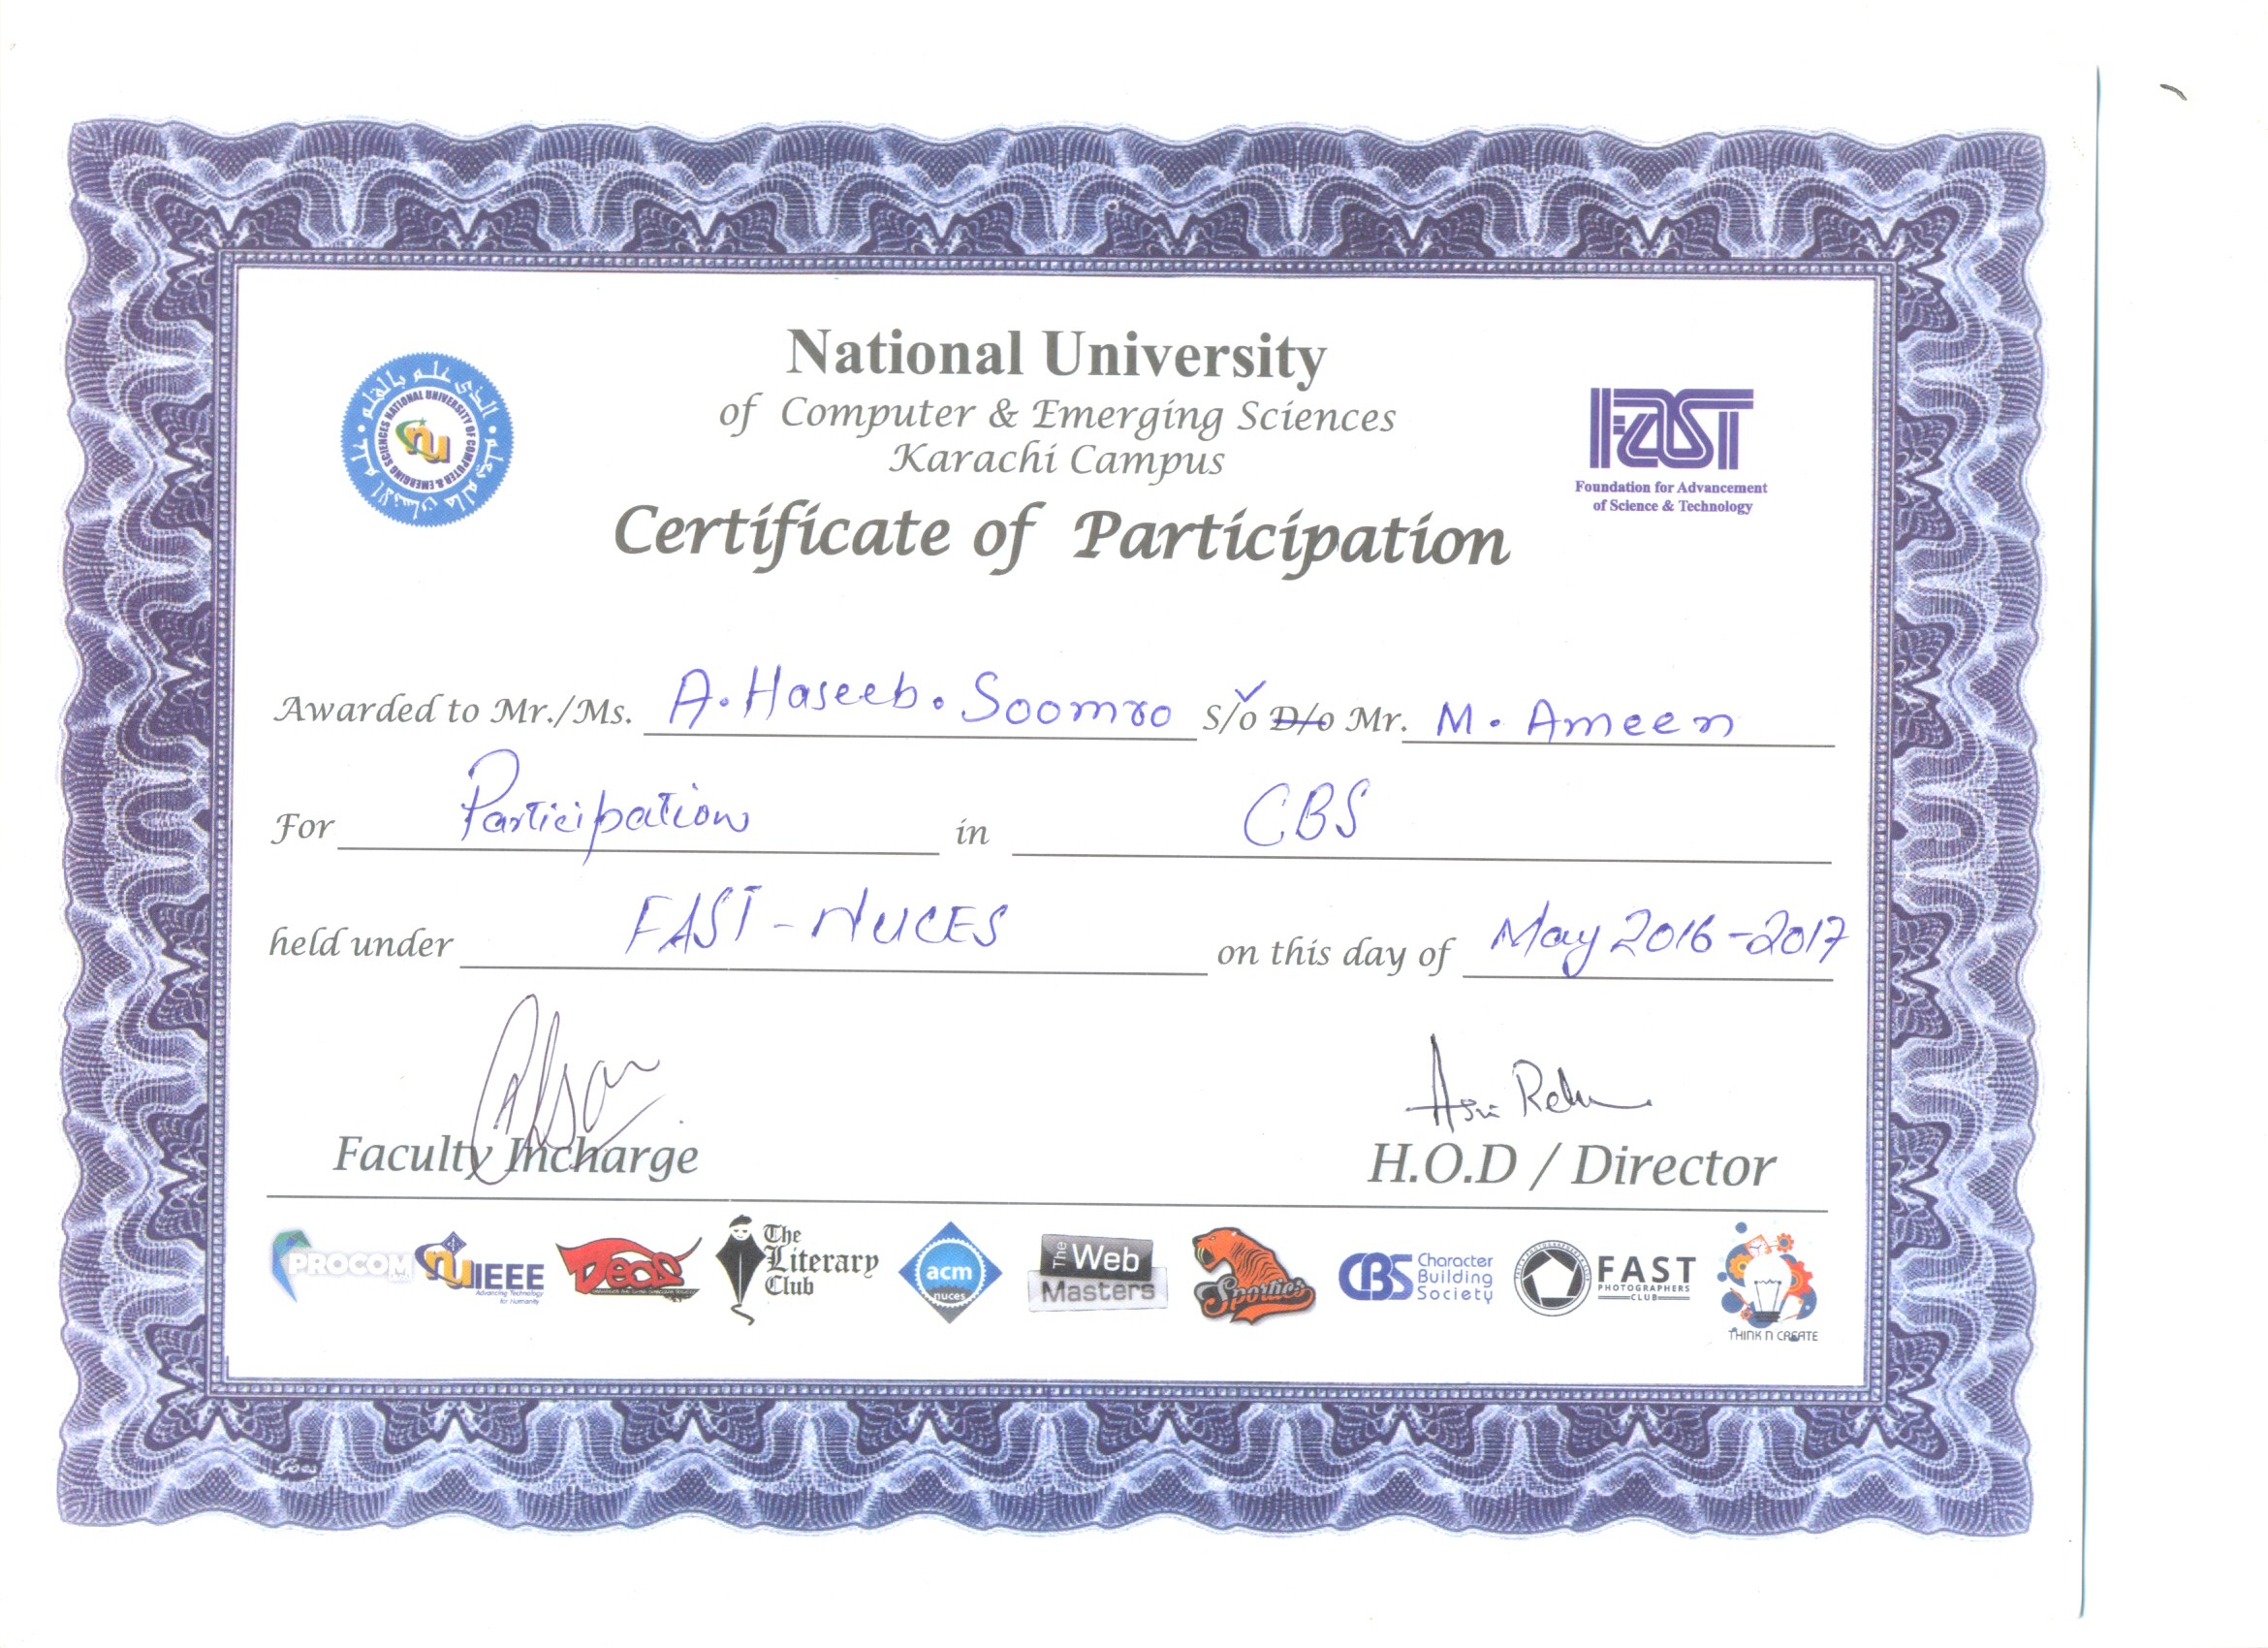 National University
of Computer & Emerging Sciences
Karachi Campus
Certificate of Participation
NATIONAL UNIVERSITY OF COMPUTER & EMERGING SCIENCES
nu
FAST
Foundation for Advancement
of Science & Technology
Awarded to Mr./Ms. A. Haseeb. Soomro S/o D/o Mr. M. Ameen
For Participation in CBS
held under FAST-NUCES on this day of May 2016-2017
Faculty Incharge
H.O.D / Director
PROCOM
nu IEEE
Advancing Technology
for Humanity
Decs
The
Literary
Club
acm
nuces
The Web
Masters
Sporties
CBS Character
Building
Society
FAST
PHOTOGRAPHERS
CLUB
THINK n CREATE
Goes